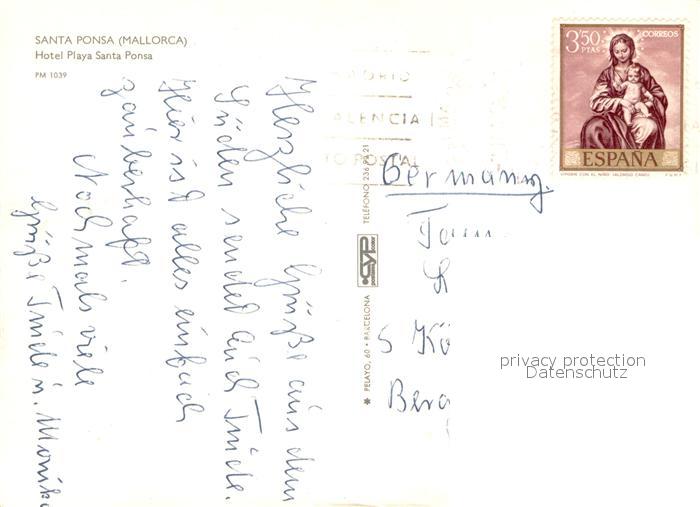 SANTA PONSA (MALLORCA)
Hotel Playa Santa Ponsa
PM 1039
Herzliche Grüße aus dem
Süden sendet Euch Trude.
Hier ist alles einfach
zauberhaft.
Nochmals viele
Grüße Trude u. Monika
MADRID
VALENCIA
POSTAL
* PELAYO, 60 • BARCELONA
CYP
TELÉFONO 236 99 21
3'50 PTAS
CORREOS
ESPAÑA
VIRGEN CON EL NIÑO (ALONSO CANO)
F.N.M.T.
Germany.
Fam
5 Kö
privacy protection
Datenschutz